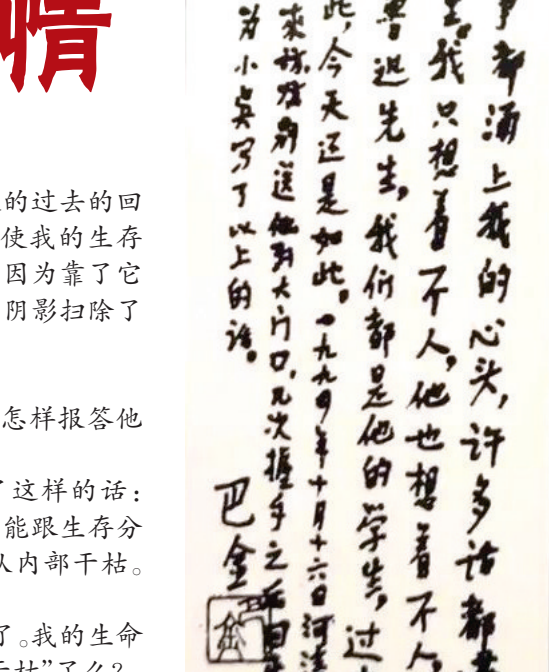 情
的过去的回
使我的生存
因为靠了它
阴影扫除了
怎样报答他
了这样的话：
能跟生存分
从内部干枯。
了。我的生命
干枯”了么？
都涌上我的心头，许多话都
我只想着一个人，他也想着一个人，
鲁迅先生，我们都是他的学生，过
此，今天还是如此。一九九〇年十月十六日河清
来访，别送他到大门口，几次握手之后回
为小吴写了以上的话。
巴金